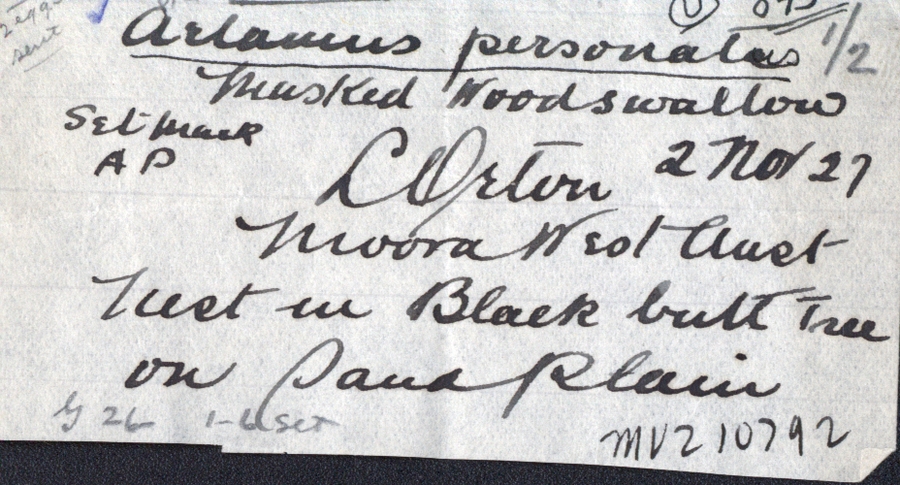 2 eggs
sent
Artamus personatus 1/2
Masked Woodswallow
Set mark
A P
L Orton 2 Nov 27
Moora West Aust
Nest in Black butt Tree
on Sand Plain
1-6 Set
MVZ 10792